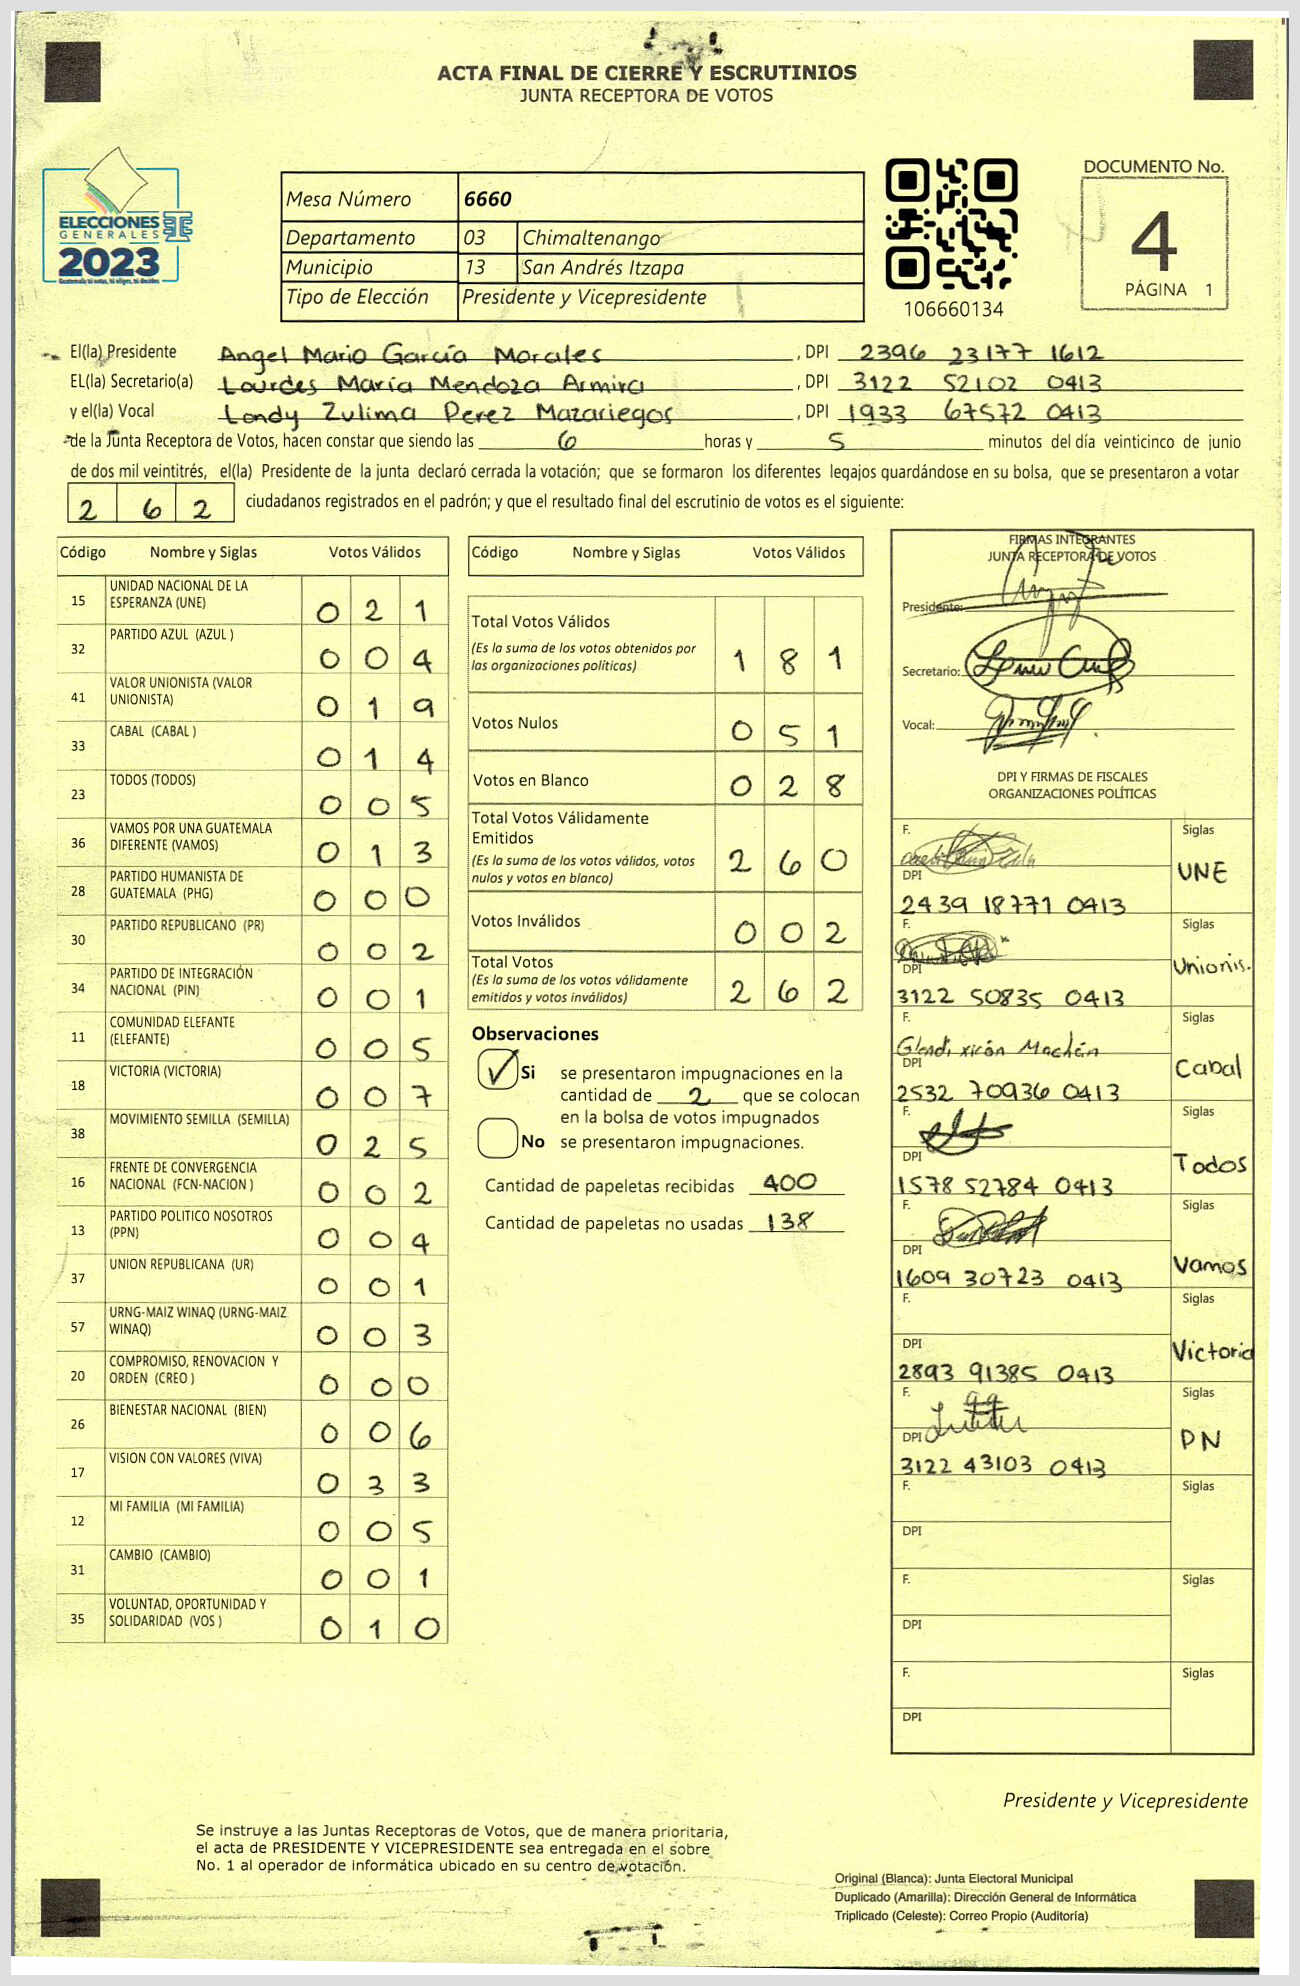 ACTA FINAL DE CIERRE Y ESCRUTINIOS
JUNTA RECEPTORA DE VOTOS
ELECCIONES
GENERALES
2023
Mesa Número 6660
Departamento 03 Chimaltenango
Municipio 13 San Andrés Itzapa
Tipo de Elección Presidente y Vicepresidente
106660134
DOCUMENTO No.
4
PÁGINA 1
El(la) Presidente Angel Mario García Morales , DPI 2396 23177 1612
EL(la) Secretario(a) Lourdes María Mendoza Armira , DPI 3122 52102 0413
y el(la) Vocal Londy Zulima Perez Mazariegos , DPI 1933 67572 0413
de la Junta Receptora de Votos, hacen constar que siendo las 6 horas y 5 minutos del día veinticinco de junio
de dos mil veintitrés, el(la) Presidente de la junta declaró cerrada la votación; que se formaron los diferentes legajos guardándose en su bolsa, que se presentaron a votar
2 6 2 ciudadanos registrados en el padrón; y que el resultado final del escrutinio de votos es el siguiente:
Código Nombre y Siglas Votos Válidos
15 UNIDAD NACIONAL DE LA
ESPERANZA (UNE) 0 2 1
32 PARTIDO AZUL (AZUL ) 0 0 4
41 VALOR UNIONISTA (VALOR
UNIONISTA) 0 1 9
33 CABAL (CABAL ) 0 1 4
23 TODOS (TODOS) 0 0 5
36 VAMOS POR UNA GUATEMALA
DIFERENTE (VAMOS) 0 1 3
28 PARTIDO HUMANISTA DE
GUATEMALA (PHG) 0 0 0
30 PARTIDO REPUBLICANO (PR) 0 0 2
34 PARTIDO DE INTEGRACIÓN
NACIONAL (PIN) 0 0 1
11 COMUNIDAD ELEFANTE
(ELEFANTE) 0 0 5
18 VICTORIA (VICTORIA) 0 0 7
38 MOVIMIENTO SEMILLA (SEMILLA) 0 2 5
16 FRENTE DE CONVERGENCIA
NACIONAL (FCN-NACION ) 0 0 2
13 PARTIDO POLITICO NOSOTROS
(PPN) 0 0 4
37 UNION REPUBLICANA (UR) 0 0 1
57 URNG-MAIZ WINAQ (URNG-MAIZ
WINAQ) 0 0 3
20 COMPROMISO, RENOVACION Y
ORDEN (CREO ) 0 0 0
26 BIENESTAR NACIONAL (BIEN) 0 0 6
17 VISION CON VALORES (VIVA) 0 3 3
12 MI FAMILIA (MI FAMILIA) 0 0 5
31 CAMBIO (CAMBIO) 0 0 1
35 VOLUNTAD, OPORTUNIDAD Y
SOLIDARIDAD (VOS ) 0 1 0
Código Nombre y Siglas Votos Válidos
Total Votos Válidos
(Es la suma de los votos obtenidos por
las organizaciones políticas) 1 8 1
Votos Nulos 0 5 1
Votos en Blanco 0 2 8
Total Votos Válidamente
Emitidos
(Es la suma de los votos válidos, votos
nulos y votos en blanco) 2 6 0
Votos Inválidos 0 0 2
Total Votos
(Es la suma de los votos válidamente
emitidos y votos inválidos) 2 6 2
Observaciones
Si se presentaron impugnaciones en la
cantidad de 2 que se colocan
en la bolsa de votos impugnados
No se presentaron impugnaciones.
Cantidad de papeletas recibidas 400
Cantidad de papeletas no usadas 138
FIRMAS INTEGRANTES
JUNTA RECEPTORA DE VOTOS
Presidente:
Secretario:
Vocal:
DPI Y FIRMAS DE FISCALES
ORGANIZACIONES POLÍTICAS
F. Siglas
DPI UNE
2439 18771 0413
F. Siglas
DPI Unionis.
3122 50835 0413
F. Siglas
Glendi xicón Machán
DPI Cabal
2532 70936 0413
F. Siglas
DPI Todos
1578 52784 0413
F. Siglas
DPI Vamos
1609 30723 0413
F. Siglas
DPI Victoria
2893 91385 0413
F. Siglas
DPI PN
3122 43103 0413
F. Siglas
DPI
F. Siglas
DPI
F. Siglas
DPI
Presidente y Vicepresidente
Se instruye a las Juntas Receptoras de Votos, que de manera prioritaria,
el acta de PRESIDENTE Y VICEPRESIDENTE sea entregada en el sobre
No. 1 al operador de informática ubicado en su centro de votación.
Original (Blanca): Junta Electoral Municipal
Duplicado (Amarilla): Dirección General de Informática
Triplicado (Celeste): Correo Propio (Auditoría)